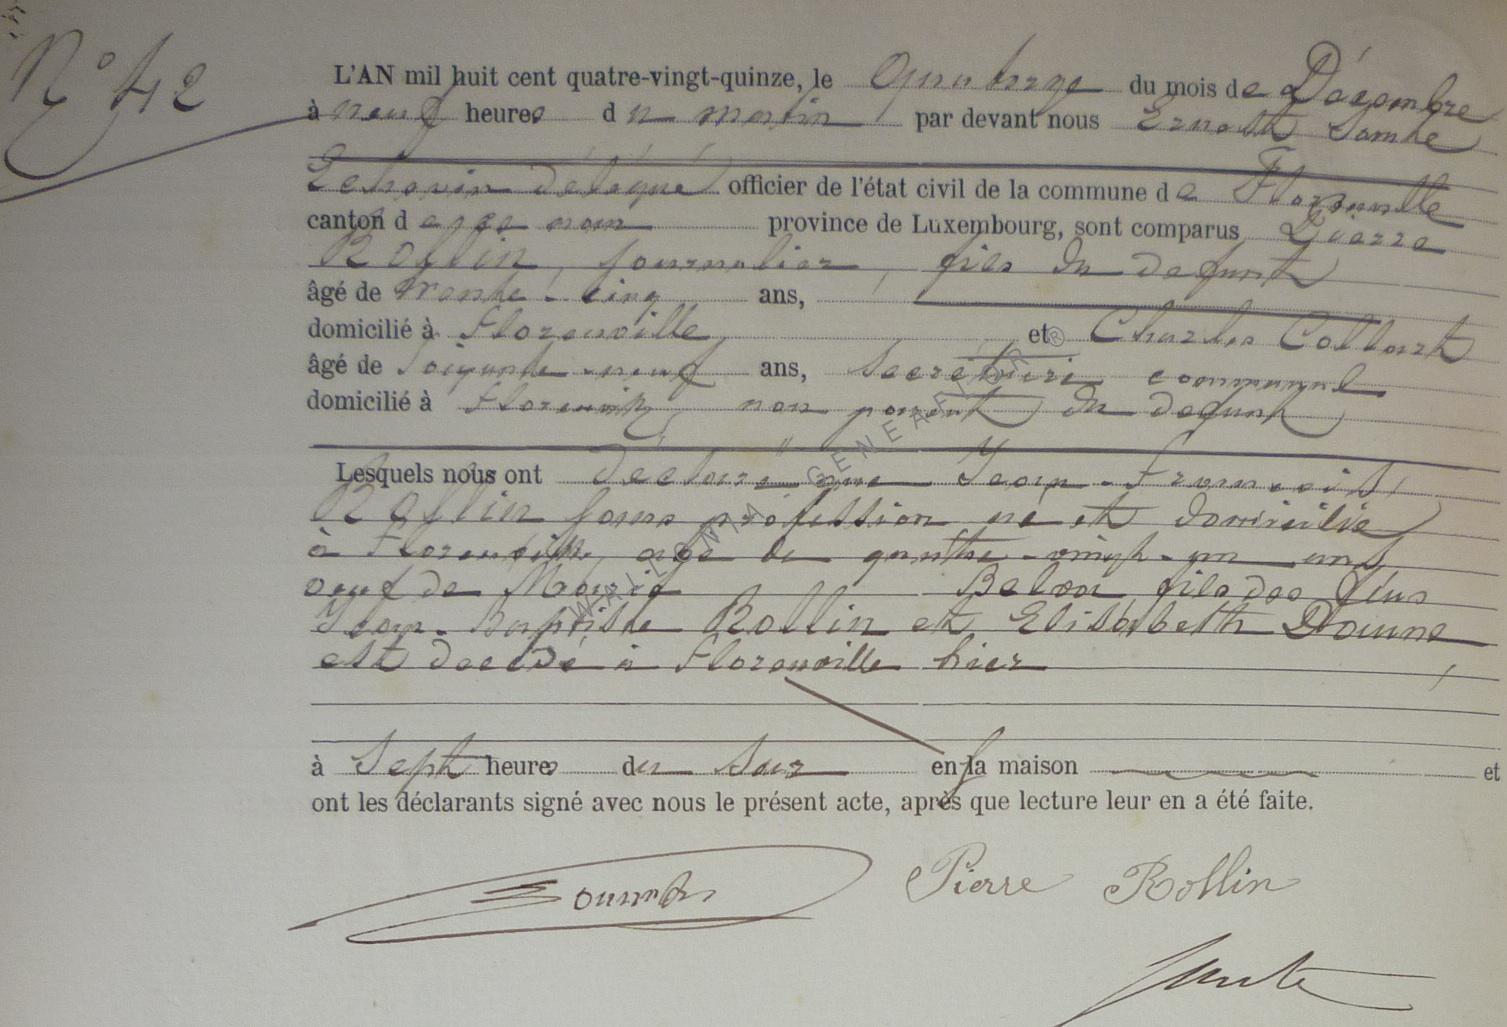 N° 42
L'AN mil huit cent quatre-vingt-quinze, le Quatorze du mois de Décembre
à neuf heures du matin par devant nous Ernest
Echevin délégué officier de l'état civil de la commune de Florenville
canton de ce nom province de Luxembourg, sont comparus Pierre
Rollin, journalier, fils du defunt
âgé de trente-cinq ans,
domicilié à Florenville et Charles Collart
âgé de Soixante-neuf ans, Secrétaire communal
domicilié à Florenville, non parent du defunt
Lesquels nous ont déclaré que Jean-François
Rollin sans profession né et domicilié
à Florenville, âgé de quatre-vingt-un ans
veuf de Marie fils des feus
Jean-Baptiste Rollin et Elisabeth
est décédé à Florenville hier
à Sept heures du soir en sa maison et
ont les déclarants signé avec nous le présent acte, après que lecture leur en a été faite.
Pierre Rollin
WALLONIA GENEAFILIA ®